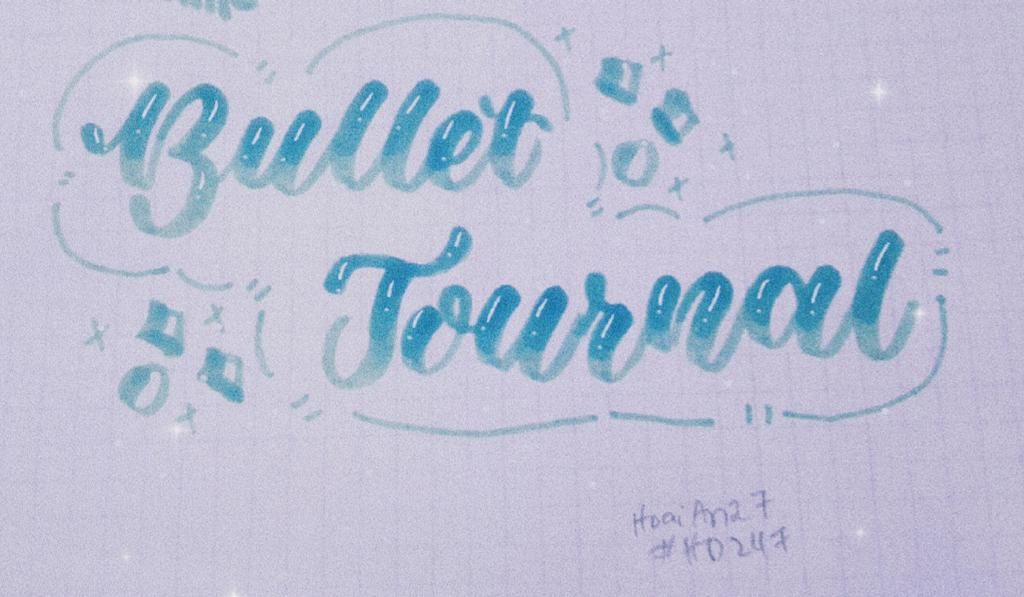 Bullet
Journal
HoaiAn27
#HD247